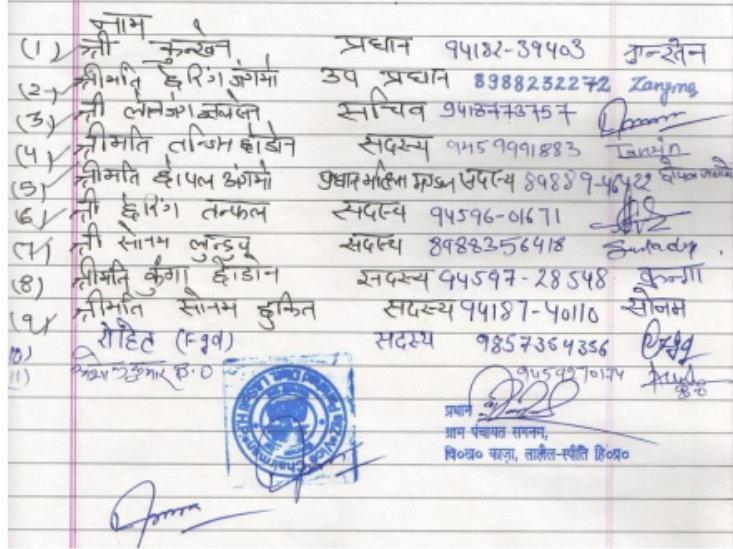 नाम
(1) श्री कुन्खेन प्रधान 94182-39403 कुन्खेन
(2) श्रीमति छेरिंग जंगमो उप प्रधान 8988232272 Zangmo
(3) श्री सचिव 9418773757
(4) श्रीमति तन्जिम छोडोन सदस्य 9459991883 Tanzin
(5) श्रीमति अंगमो प्रधान महिला मण्डल सदस्य 89889-46422
(6) श्री छेरिंग तन्फल सदस्य 94596-01671
(7) श्री सोनम लुन्डुप सदस्य 8988356418
(8) श्रीमति कुंगा छोडोन सदस्य 94597-28548 कुन्गा
(9) श्रीमति सोनम डुकित सदस्य 94187-40110 सोनम
10) रोहित (Fgd) सदस्य 9857354356
11) B.O 9459270174
प्रधान
ग्राम पंचायत सगनम,
वि०ख० काज़ा, लाहौल-स्पीति हि०प्र०